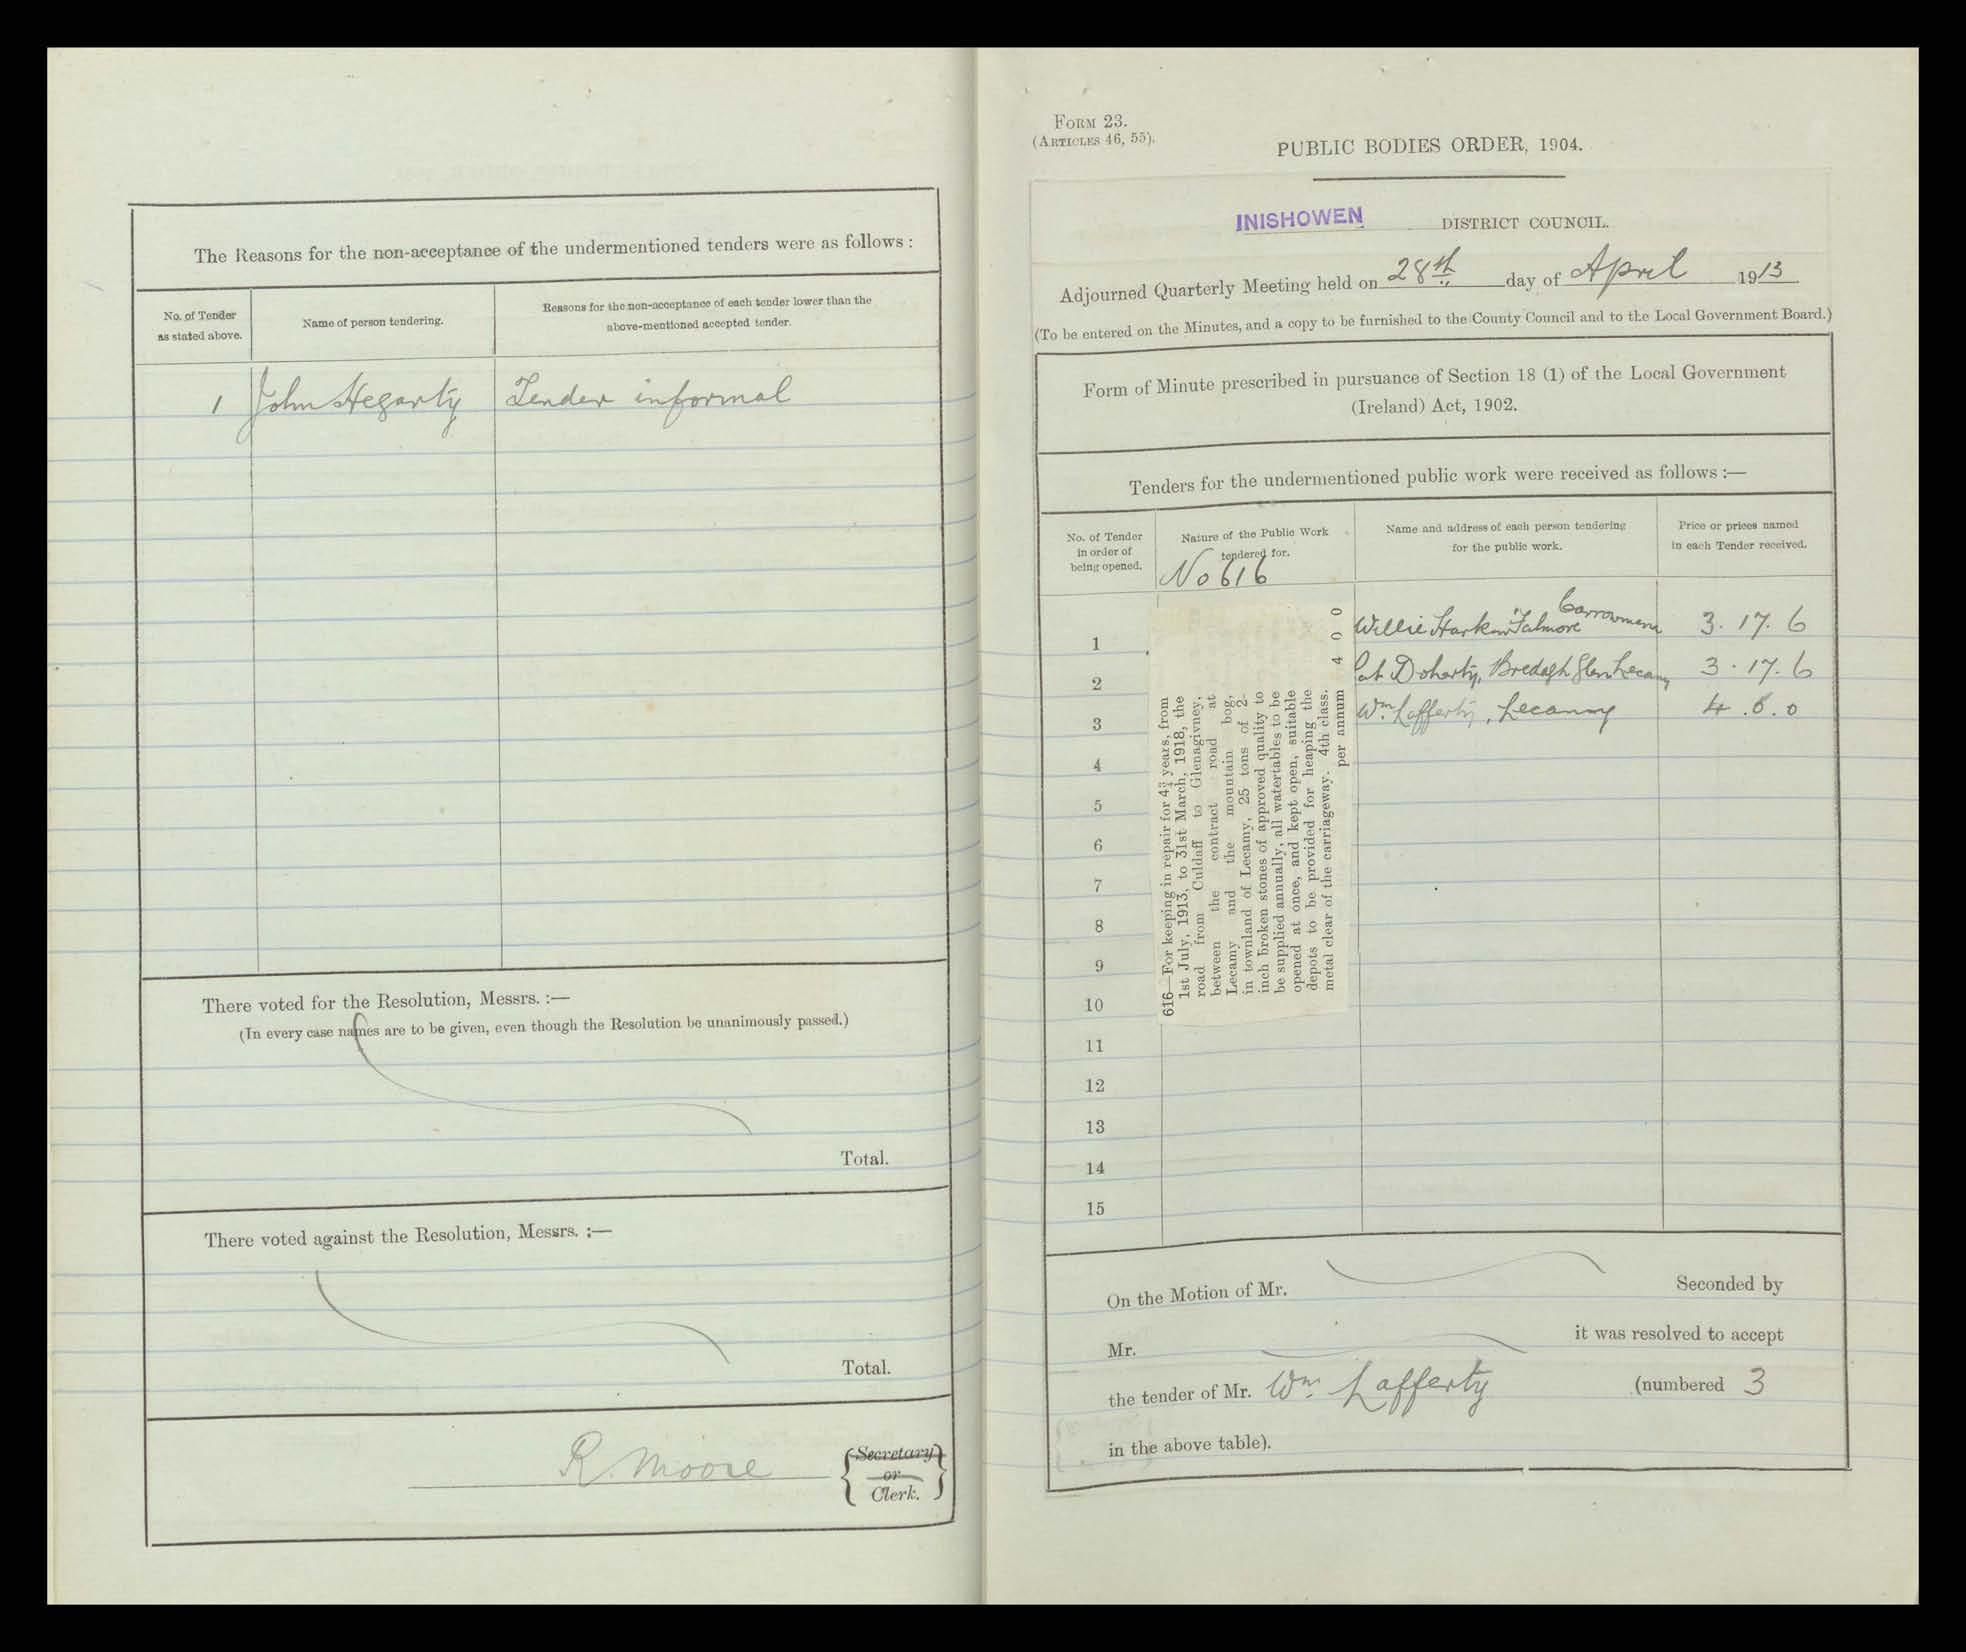 The Reasons for the non-acceptance of the undermentioned tenders were as follows :
No. of Tender
as stated above.
Name of person tendering.
Reasons for the non-acceptance of each tender lower than the
above-mentioned accepted tender.
1 John Hegarty Tender informal
There voted for the Resolution, Messrs. :—
(In every case names are to be given, even though the Resolution be unanimously passed.)
Total.
There voted against the Resolution, Messrs. :—
Total.
R. Moore
Secretary
or
Clerk.
FORM 23.
(ARTICLES 46, 55).
PUBLIC BODIES ORDER, 1904.
INISHOWEN DISTRICT COUNCIL.
Adjourned Quarterly Meeting held on 28th day of April 1913
(To be entered on the Minutes, and a copy to be furnished to the County Council and to the Local Government Board.)
Form of Minute prescribed in pursuance of Section 18 (1) of the Local Government
(Ireland) Act, 1902.
Tenders for the undermentioned public work were received as follows :—
No. of Tender
in order of
being opened.
Nature of the Public Work
tendered for.
No 616
Name and address of each person tendering
for the public work.
Price or prices named
in each Tender received.
616—For keeping in repair for 4¾ years, from
1st July, 1913, to 31st March, 1918, the
road from Culdaff to Glenagivney,
between the contract road at
Lecamy and the mountain bog,
in townland of Lecamy, 25 tons of 2-
inch broken stones of approved quality to
be supplied annually, all watertables to be
opened at once, and kept open, suitable
depots to be provided for heaping the
metal clear of the carriageway. 4th class.
per annum 4 0 0
1 Willie Harkin Falmore Carrowmena 3. 17. 6
2 Pat Doherty, Bredagh Glen Lecamy 3. 17. 6
3 Wm Lafferty, Lecamy
4
5
6
7
8
9
10
11
12
13
14
15
On the Motion of Mr. Seconded by
Mr. it was resolved to accept
the tender of Mr. Wm. Lafferty (numbered 3
in the above table).